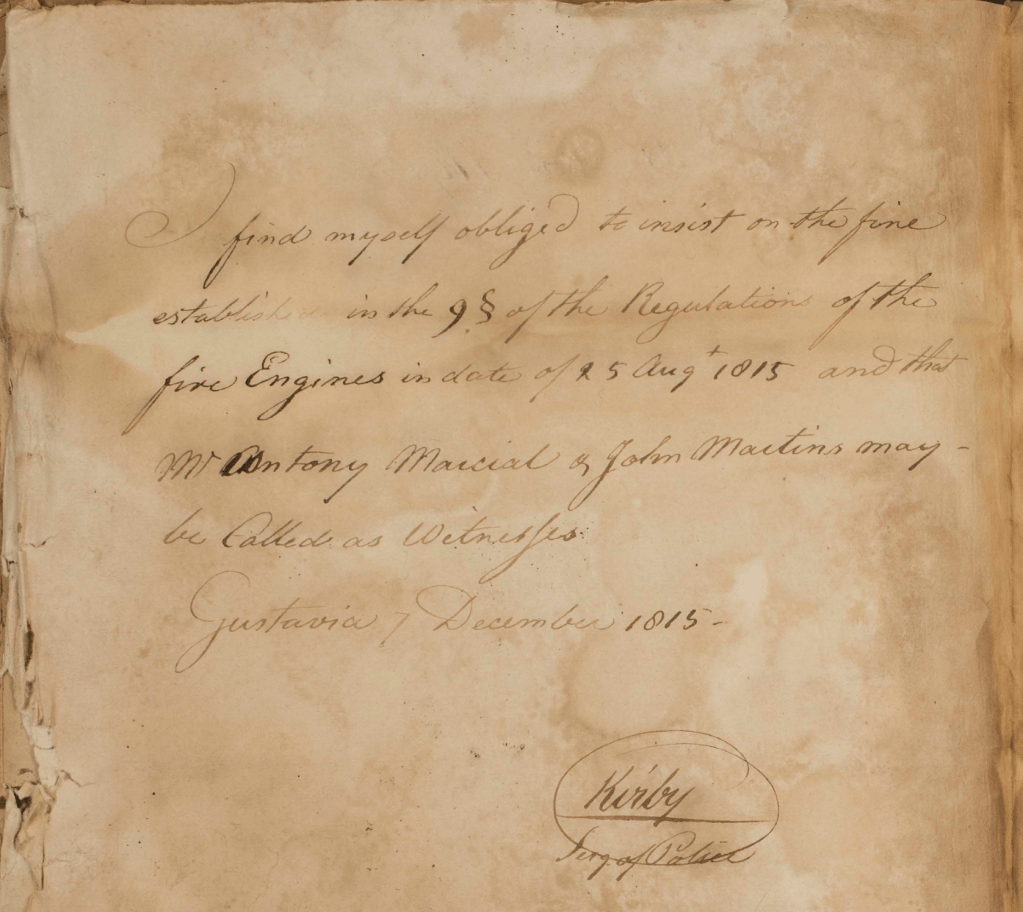 I find myself obliged to insist on the fine
established in the 9 § of the Regulations of the
fire Engines in date of 25 Augt 1815 and that
Mr Antony Marcial & John Martins may -
be Called as Witnesses
Gustavia 7 December 1815 -
Kirby
Serg of Police